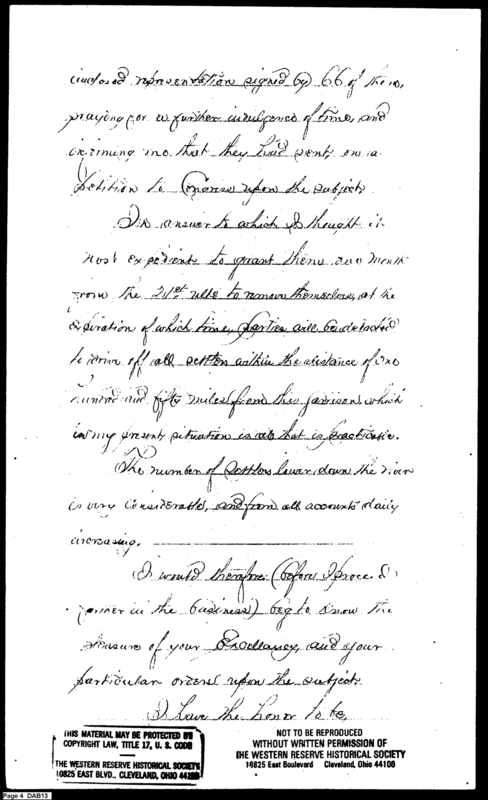 inclosed representation signed by 66 of them,
praying for a further indulgence of time, and
informing me that they had sent on a
Petition to Congress upon the subject
In answer to which I thought it
most expedient to grant them one month
from the 21st ulto to remove themselves, at the
expiration of which time, parties will be detached
to drive off all settlers within the distance of One
hundred and fifty miles from this garrison, which
in my present situation is all that is practicable.
The number of settlers lower down the river
is very considerable, and from all accounts daily
increasing.
I would therefore (before I proceed
further in the business) beg to know the
pleasure of your Excellency, and your
particular orders upon the subject.
I have the honor to be,
THIS MATERIAL MAY BE PROTECTED BY
COPYRIGHT LAW, TITLE 17, U. S. CODE
THE WESTERN RESERVE HISTORICAL SOCIETY
10825 EAST BLVD., CLEVELAND, OHIO 44106
NOT TO BE REPRODUCED
WITHOUT WRITTEN PERMISSION OF
THE WESTERN RESERVE HISTORICAL SOCIETY
10825 East Boulevard Cleveland, Ohio 44106
Page 4 DAB13